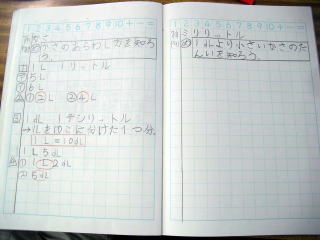 1 2 3 4 5 6 7 8 9 10 + - =
めかさのあらわし方を知ろ
う。
1 1L 1リットル
⑦5L
①6L
△①②L ②④L
2 1dL 1デシリットル
→1Lを10こに分けた1つ分。
1L=10dL
1L5dL
△①1L2dL
②5dL
1 2 3 4 5 6 7 8 9 10 + - =
ミリリットル
め1dLより小さいかさのた
んいを知ろう。